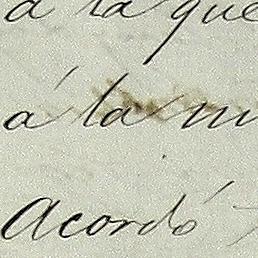 á la que
á la mi
Acordó